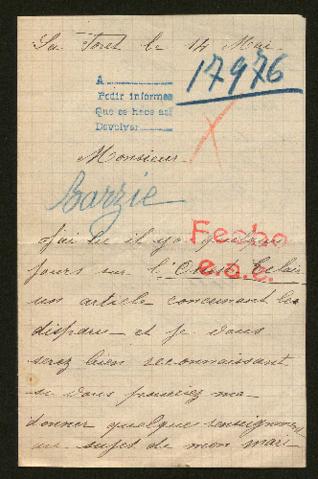 La Foret le 14 Mai
17976
A
Pedir informes
Que se hace así
Devolver
X
Monsieur
Barzie
Fecho
J'ai lu il y a quelques
e.o.e.
jours sur l'Ouest Eclair
un article concernant les
disparu et je vous
serez bien reconnaissant
si vous pouviez me
donner quelque renseignement
au sujet de mon mari